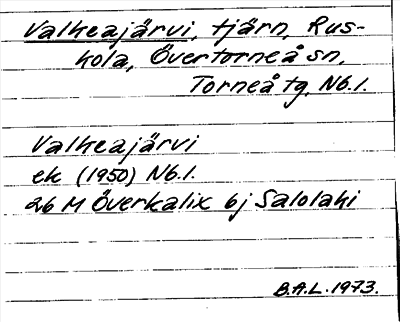 Valkeajärvi, tjärn, Rus-
kola, Övertorneå sn,
Torneå tg, Nb.l.
Valkeajärvi
ek (1950) Nb.l.
26 M Överkalix 6j Salolaki
B.A.L. 1973.